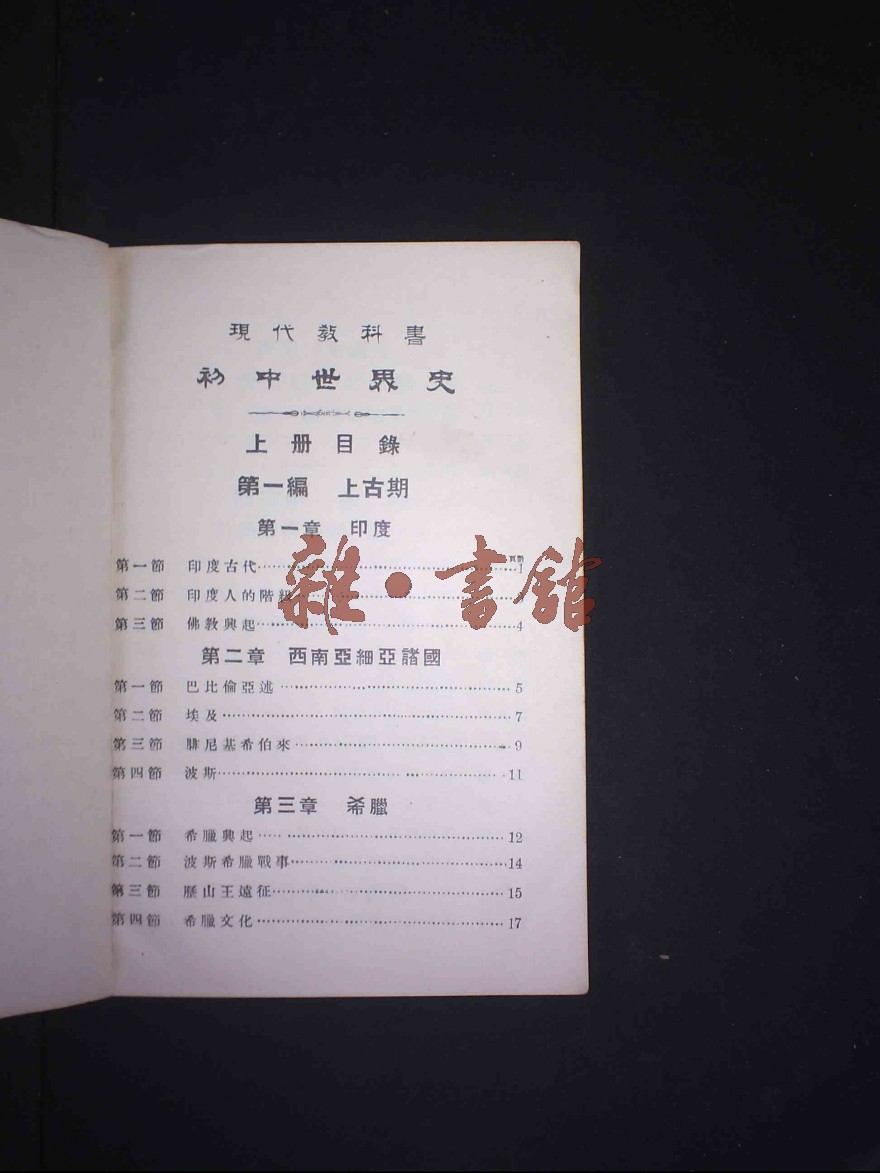 現代教科書
初中世界史
上册目錄
第一編 上古期
第一章 印度
頁數
第一節 印度古代……1
第二節 印度人的階級……
第三節 佛教興起……4
第二章 西南亞細亞諸國
第一節 巴比倫亞述……5
第二節 埃及……7
第三節 腓尼基希伯來……9
第四節 波斯……11
第三章 希臘
第一節 希臘興起……12
第二節 波斯希臘戰事……14
第三節 歷山王遠征……15
第四節 希臘文化……17
雜·書館